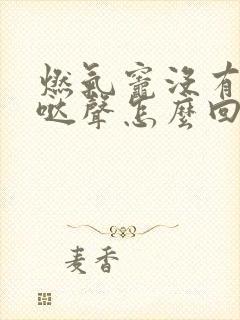 燃氣竈沒有
噠聲怎麼回
麦香